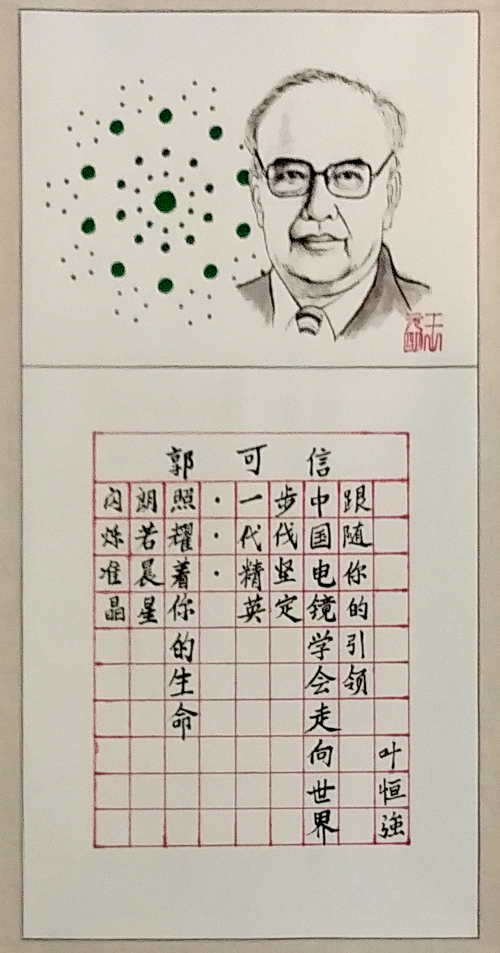 郭可信
闪烁准晶
朗若晨星
照耀着你的生命
···
一代精英
步伐坚定
中国电镜学会走向世界
跟随你的引领
叶恒強